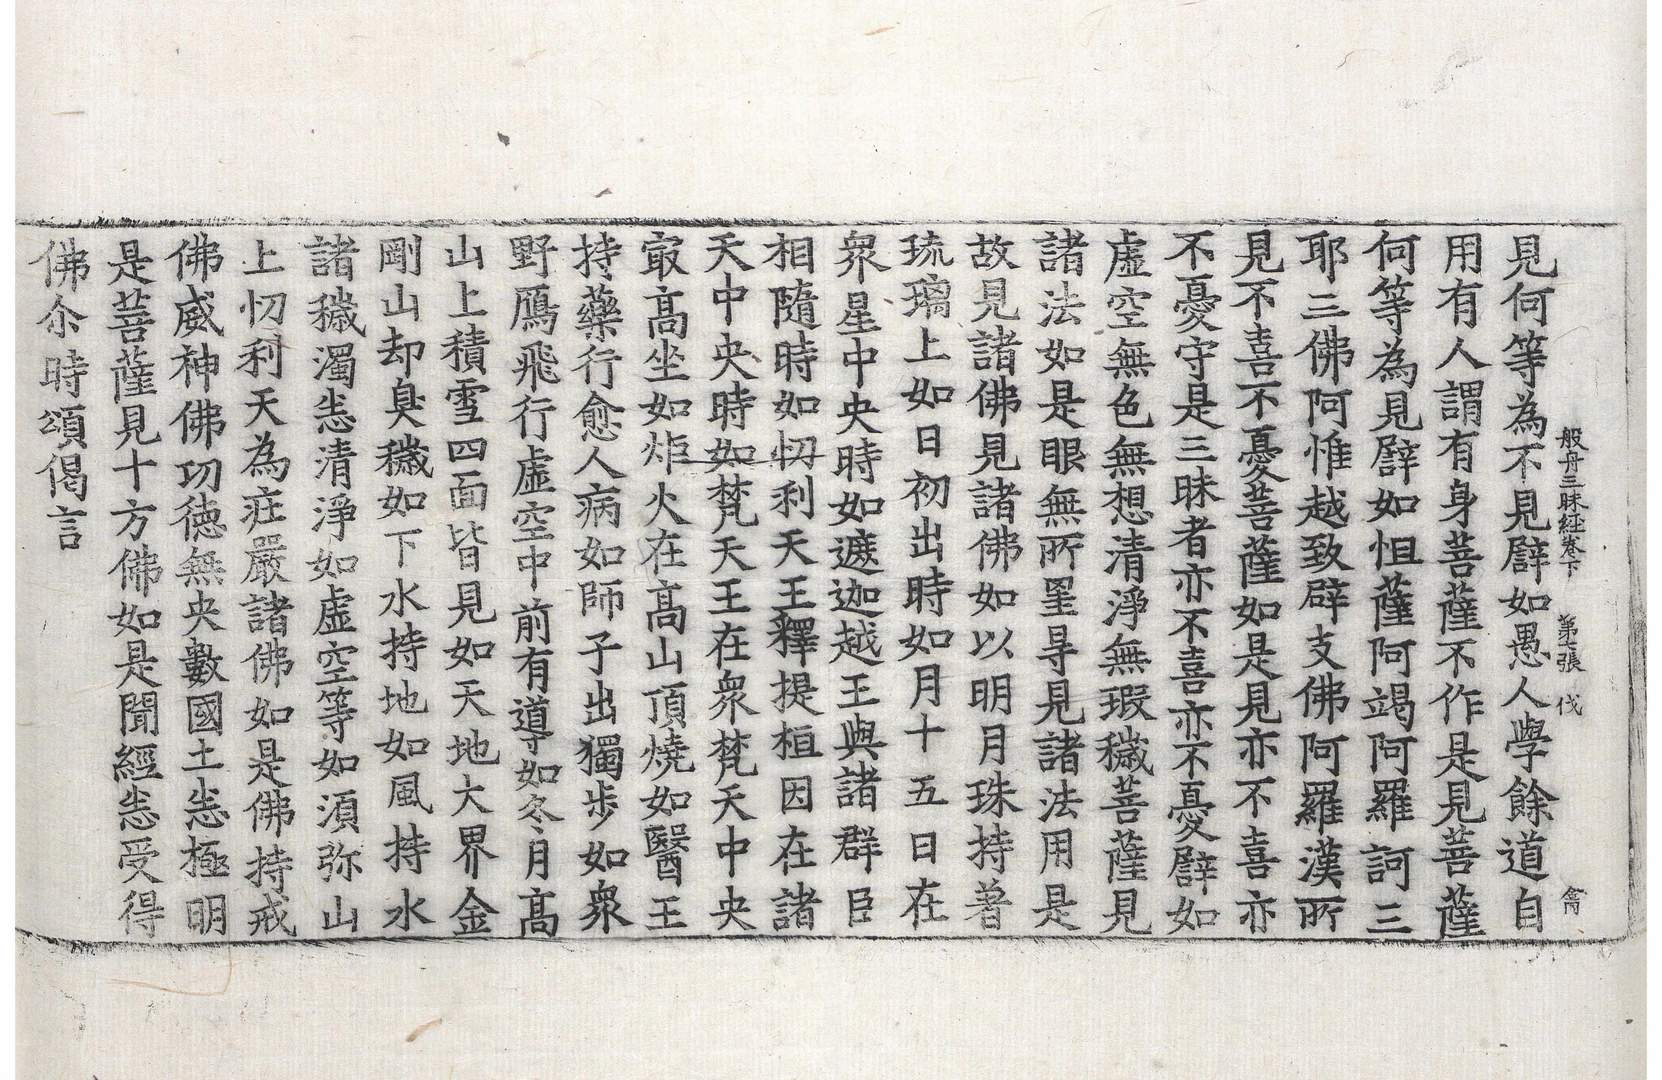 見何等為不見譬如愚人學餘道自
般舟三昧經卷下 第七張 伐
用有人謂有身菩薩不作是見菩薩
何等為見譬如怛薩阿竭阿羅訶三
耶三佛阿惟越致辟支佛阿羅漢所
見不喜不憂菩薩如是見亦不喜亦
不憂守是三昧者亦不喜亦不憂譬如
虛空無色無想清淨無瑕穢菩薩見
諸法如是眼無所罣㝵見諸法用是
故見諸佛見諸佛如以明月珠持著
琉璃上如日初出時如月十五日在
衆星中央時如遮迦越王與諸群臣
相隨時如忉利天王釋提桓因在諸
天中央時如梵天王在衆梵天中央
㝡高坐如炬火在高山頂燒如醫王
持藥行愈人病如師子出獨步如衆
野鴈飛行虛空中前有導如冬月高
山上積雪四面皆見如天地大界金
剛山却臭穢如下水持地如風持水
諸穢濁悉清淨如虛空等如須弥山
上忉利天為疘嚴諸佛如是佛持戒
佛威神佛功德無央數國土悉極明
是菩薩見十方佛如是聞經悉受得
佛尒時頌偈言